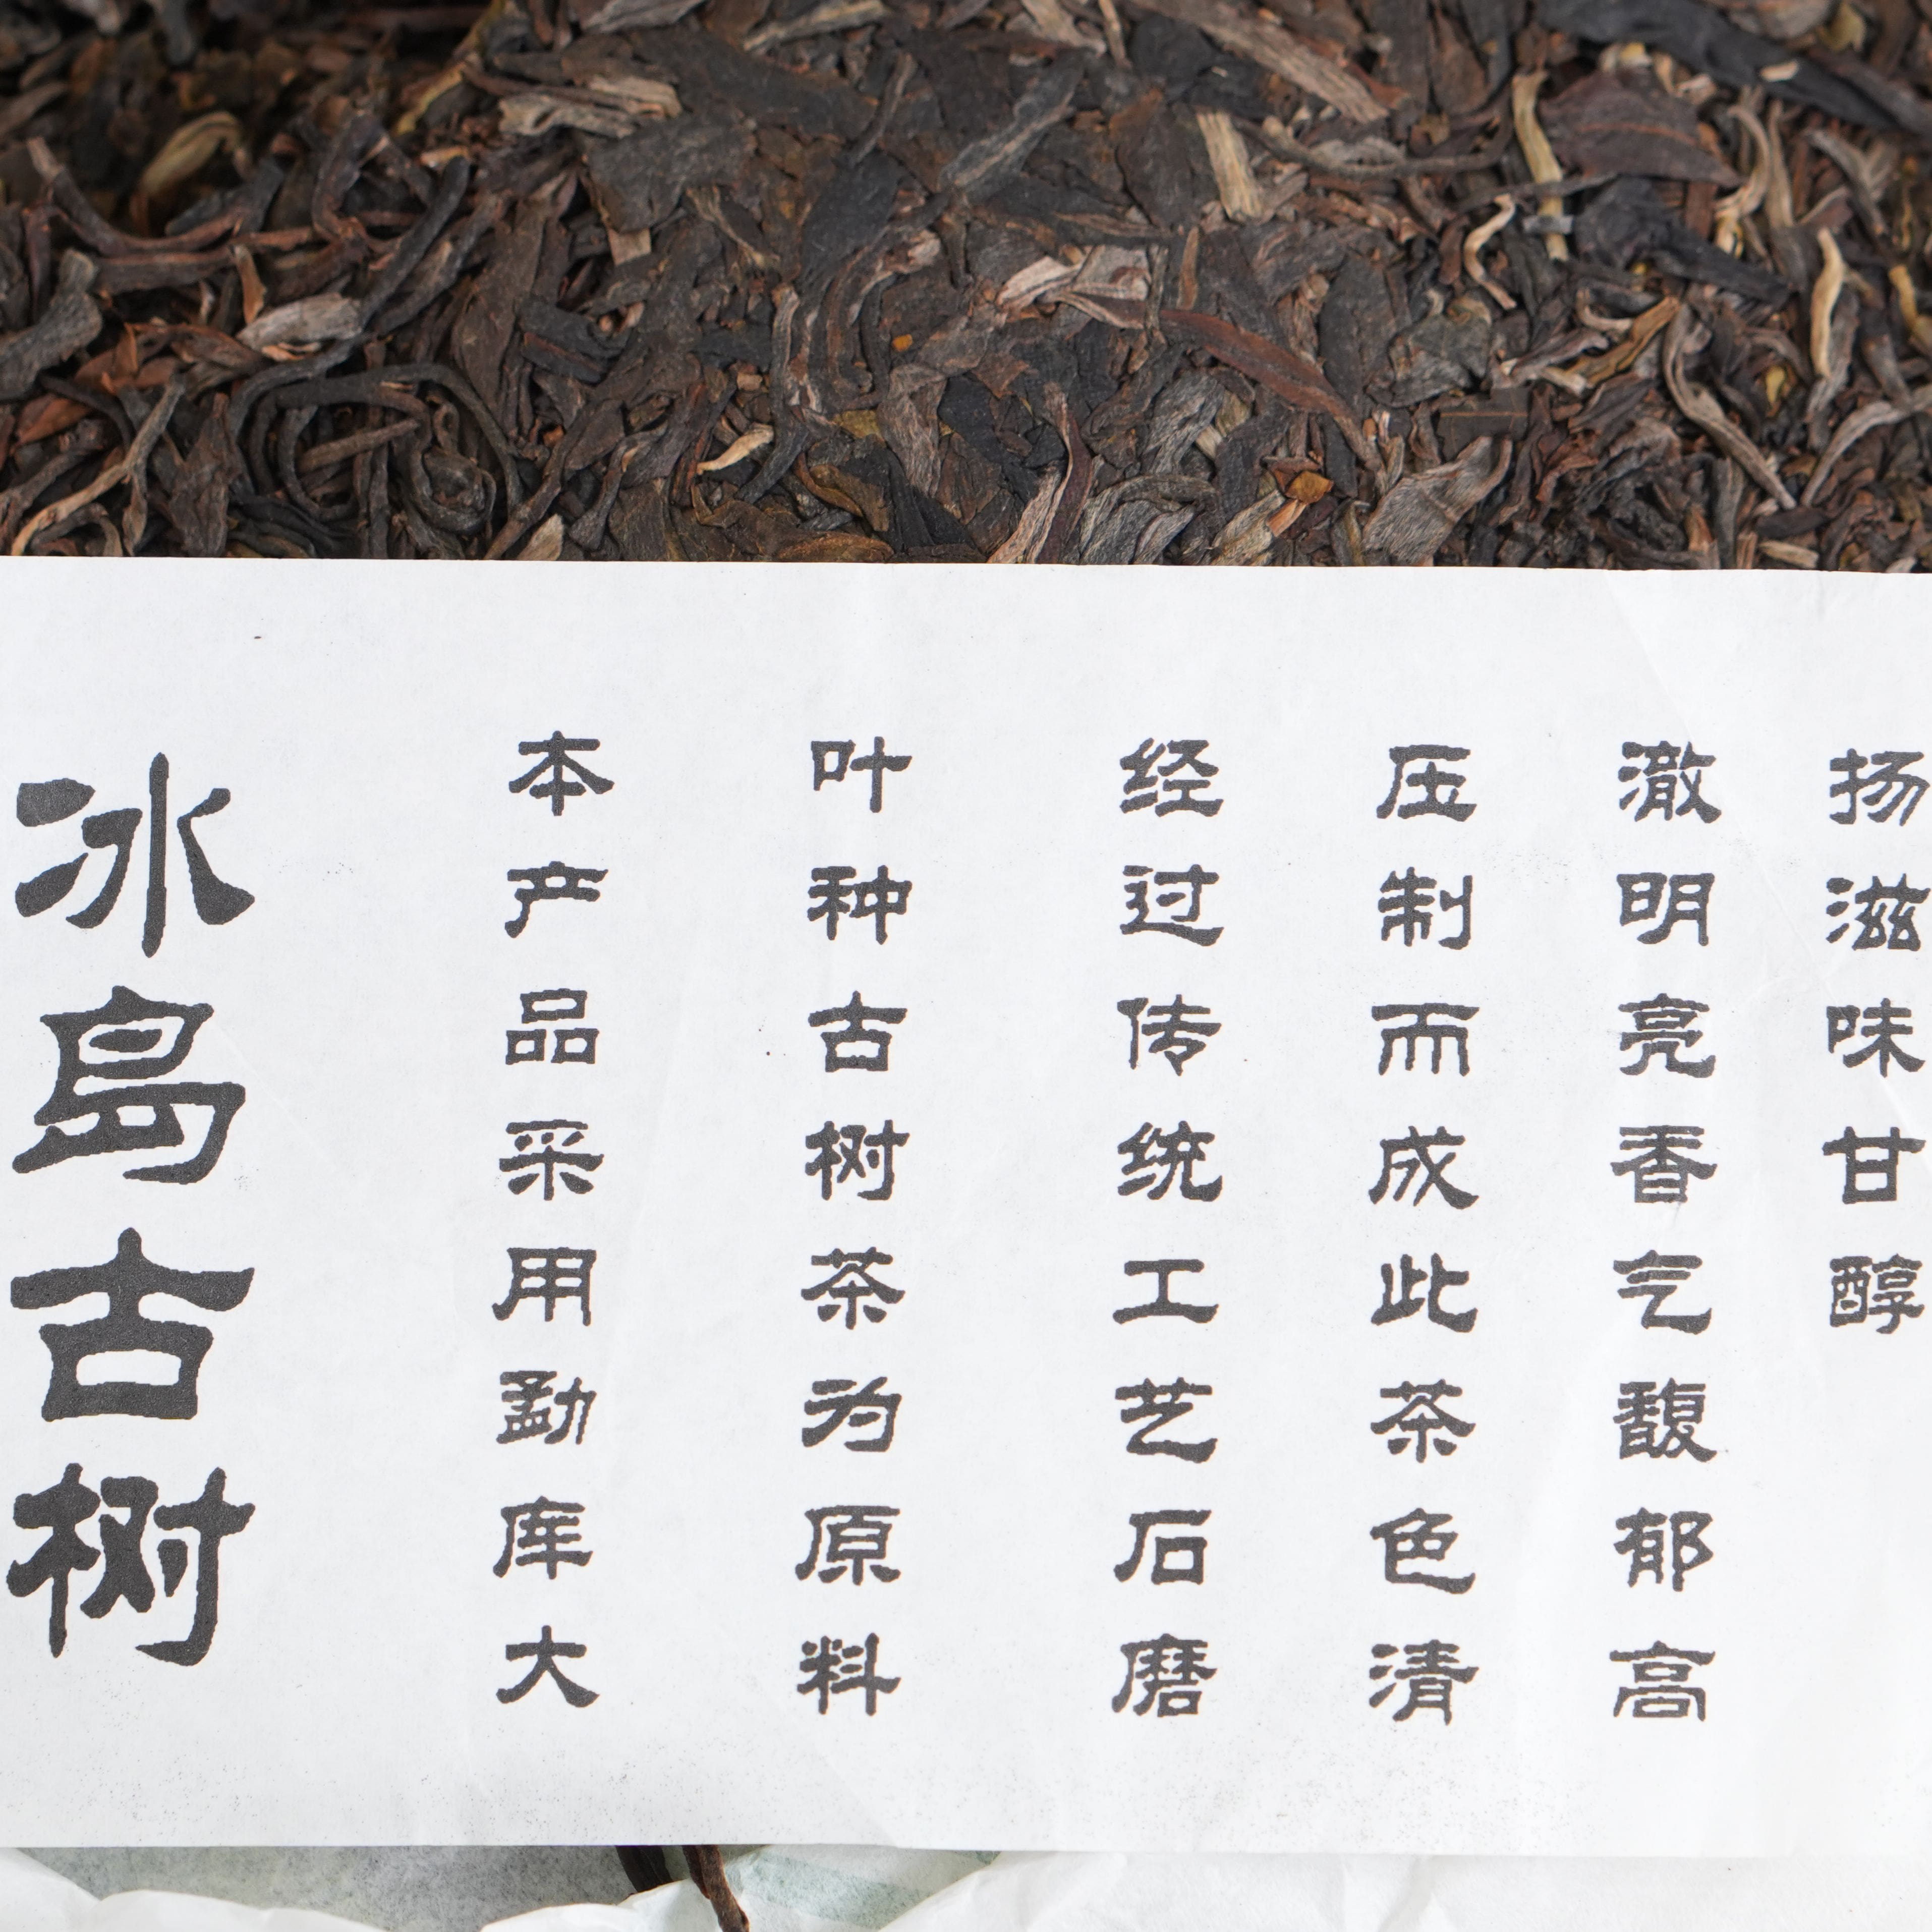 冰島古树
本产品采用勐库大
叶种古树茶为原料
经过传统工艺石磨
压制而成此茶色清
澈明亮香气馥郁高
扬滋味甘醇